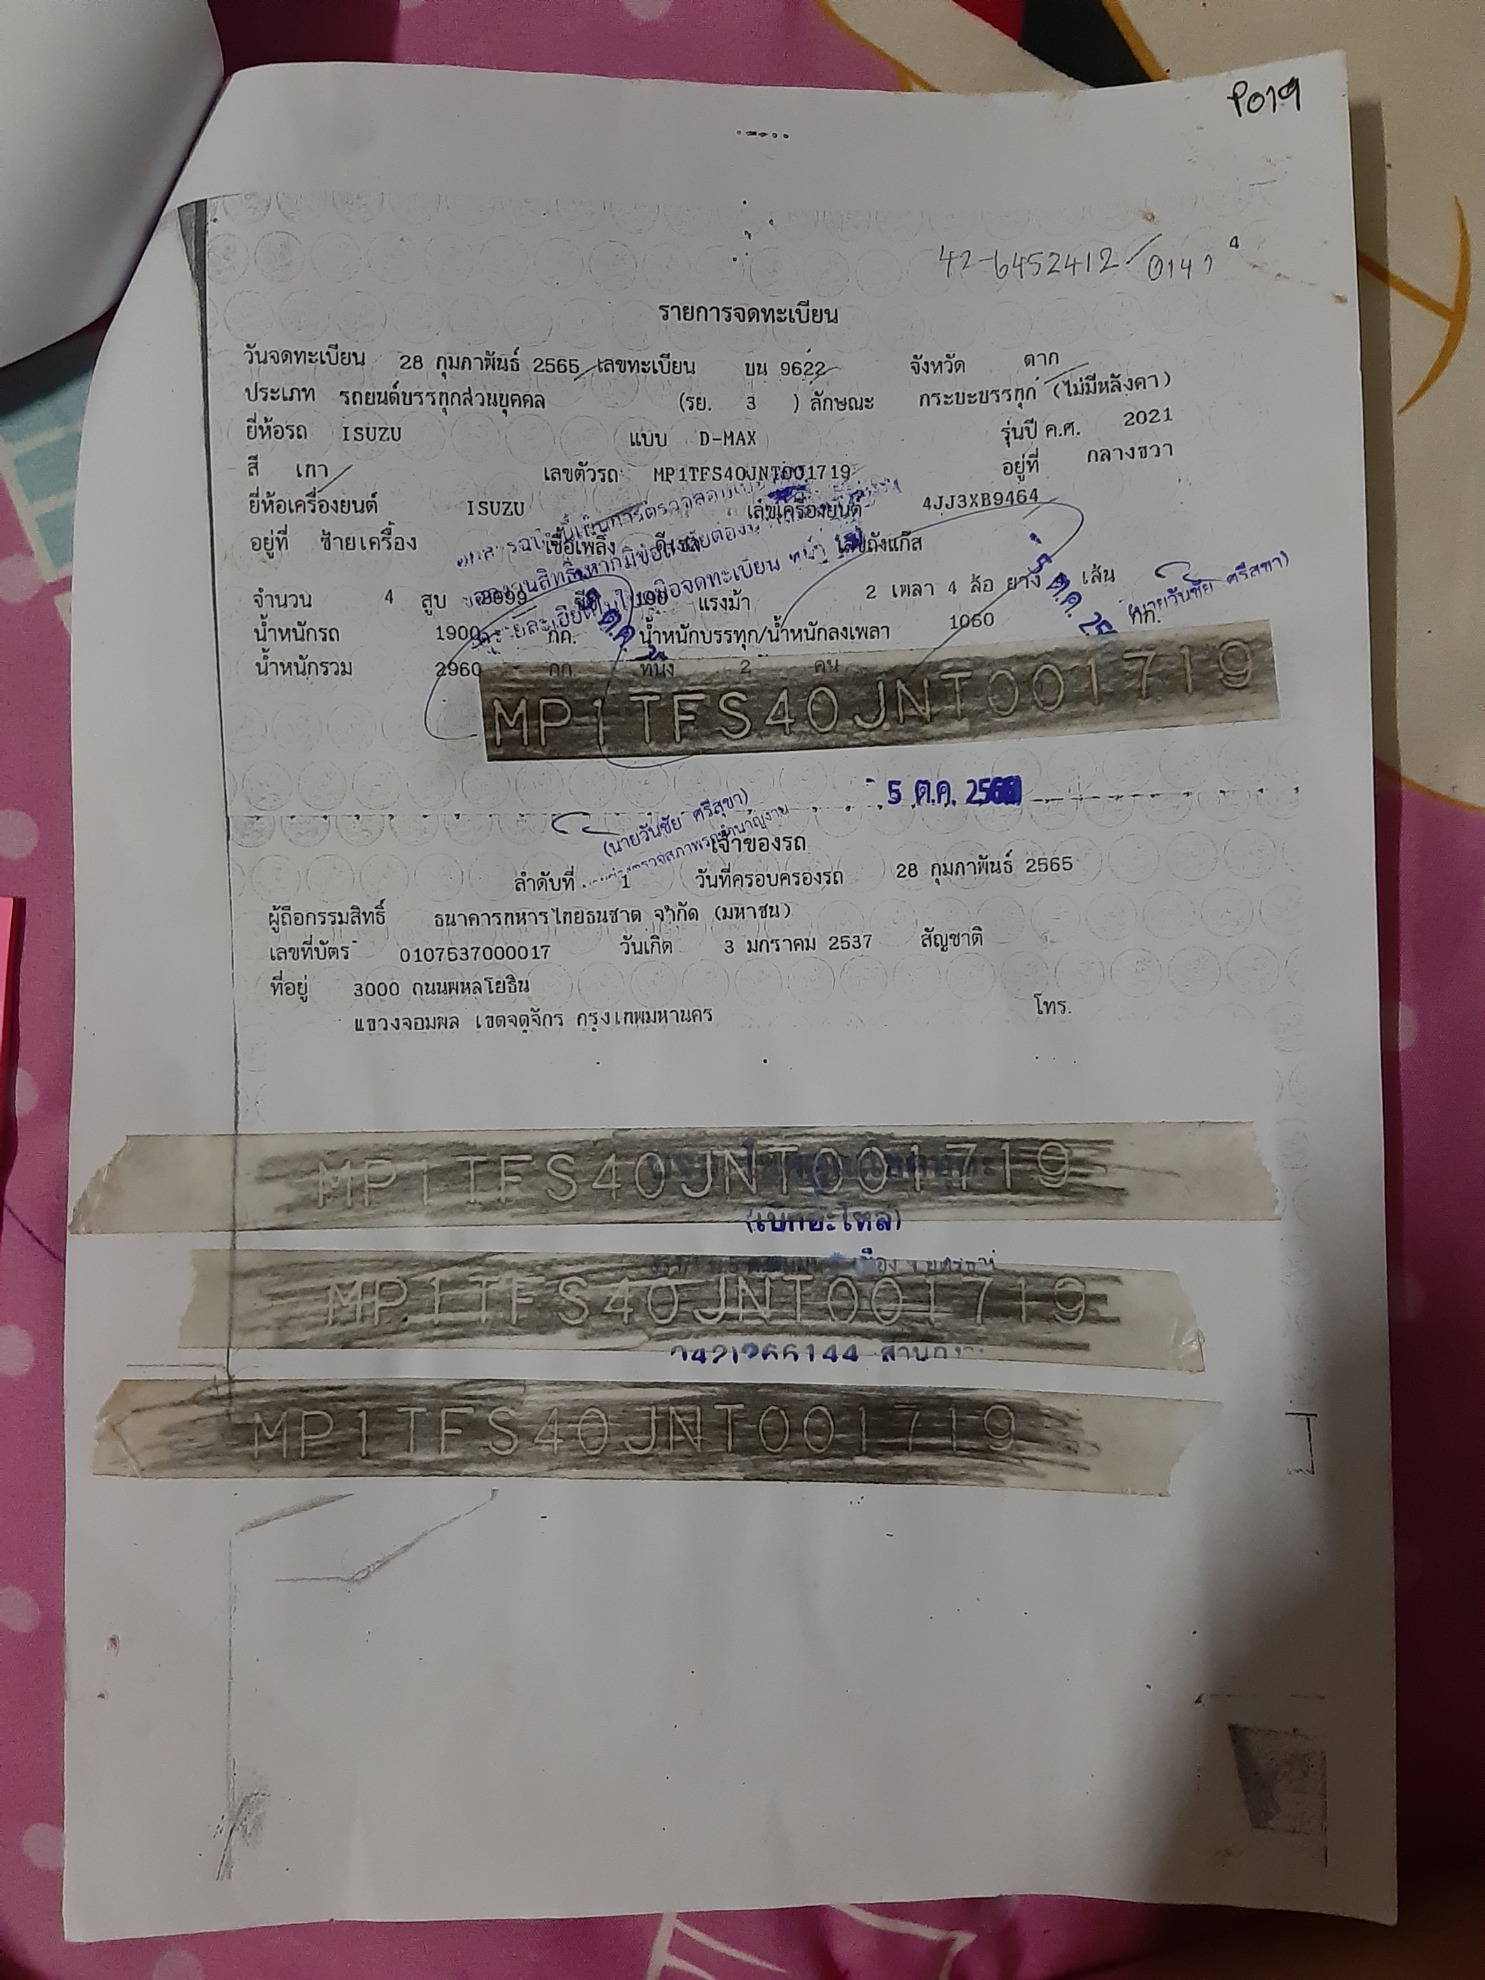 P019
42-6452412/0147
รายการจดทะเบียน
วันจดทะเบียน 28 กุมภาพันธ์ 2565 เลขทะเบียน บน 9622 จังหวัด ตาก
ประเภท รถยนต์บรรทุกส่วนบุคคล (รย. 3 ) ลักษณะ กระบะบรรทุก (ไม่มีหลังคา)
ยี่ห้อรถ ISUZU แบบ D-MAX รุ่นปี ค.ศ. 2021
สี เทา เลขตัวรถ MP1TFS40JNT001719 อยู่ที่ กลางขวา
ยี่ห้อเครื่องยนต์ ISUZU เลขเครื่องยนต์ 4JJ3XB9464
อยู่ที่ ซ้ายเครื่อง เชื้อเพลิง ดีเซล เลขถังแก๊ส
จำนวน 4 สูบ 2999 ซีซี 190 แรงม้า 2 เพลา 4 ล้อ ยาง เส้น
น้ำหนักรถ 1900 กก. น้ำหนักบรรทุก/น้ำหนักลงเพลา 1060 กก.
น้ำหนักรวม 2960 กก ที่นั่ง 2 คน
(นายวันชัย ศรีสุขา)
MP1TFS40JNT001719
5 ต.ค.
(นายวันชัย ศรีสุขา)
เจ้าของรถ
ลำดับที่ 1 วันที่ครอบครองรถ 28 กุมภาพันธ์ 2565
ผู้ถือกรรมสิทธิ์ ธนาคารทหารไทยธนชาต จำกัด (มหาชน)
เลขที่บัตร 0107537000017 วันเกิด 3 มกราคม 2537 สัญชาติ
ที่อยู่ 3000 ถนนพหลโยธิน
แขวงจอมพล เขตจตุจักร กรุงเทพมหานคร โทร.
MP1TFS40JNT001719
MP1TFS40JNT001719
MP1TFS40JNT001719